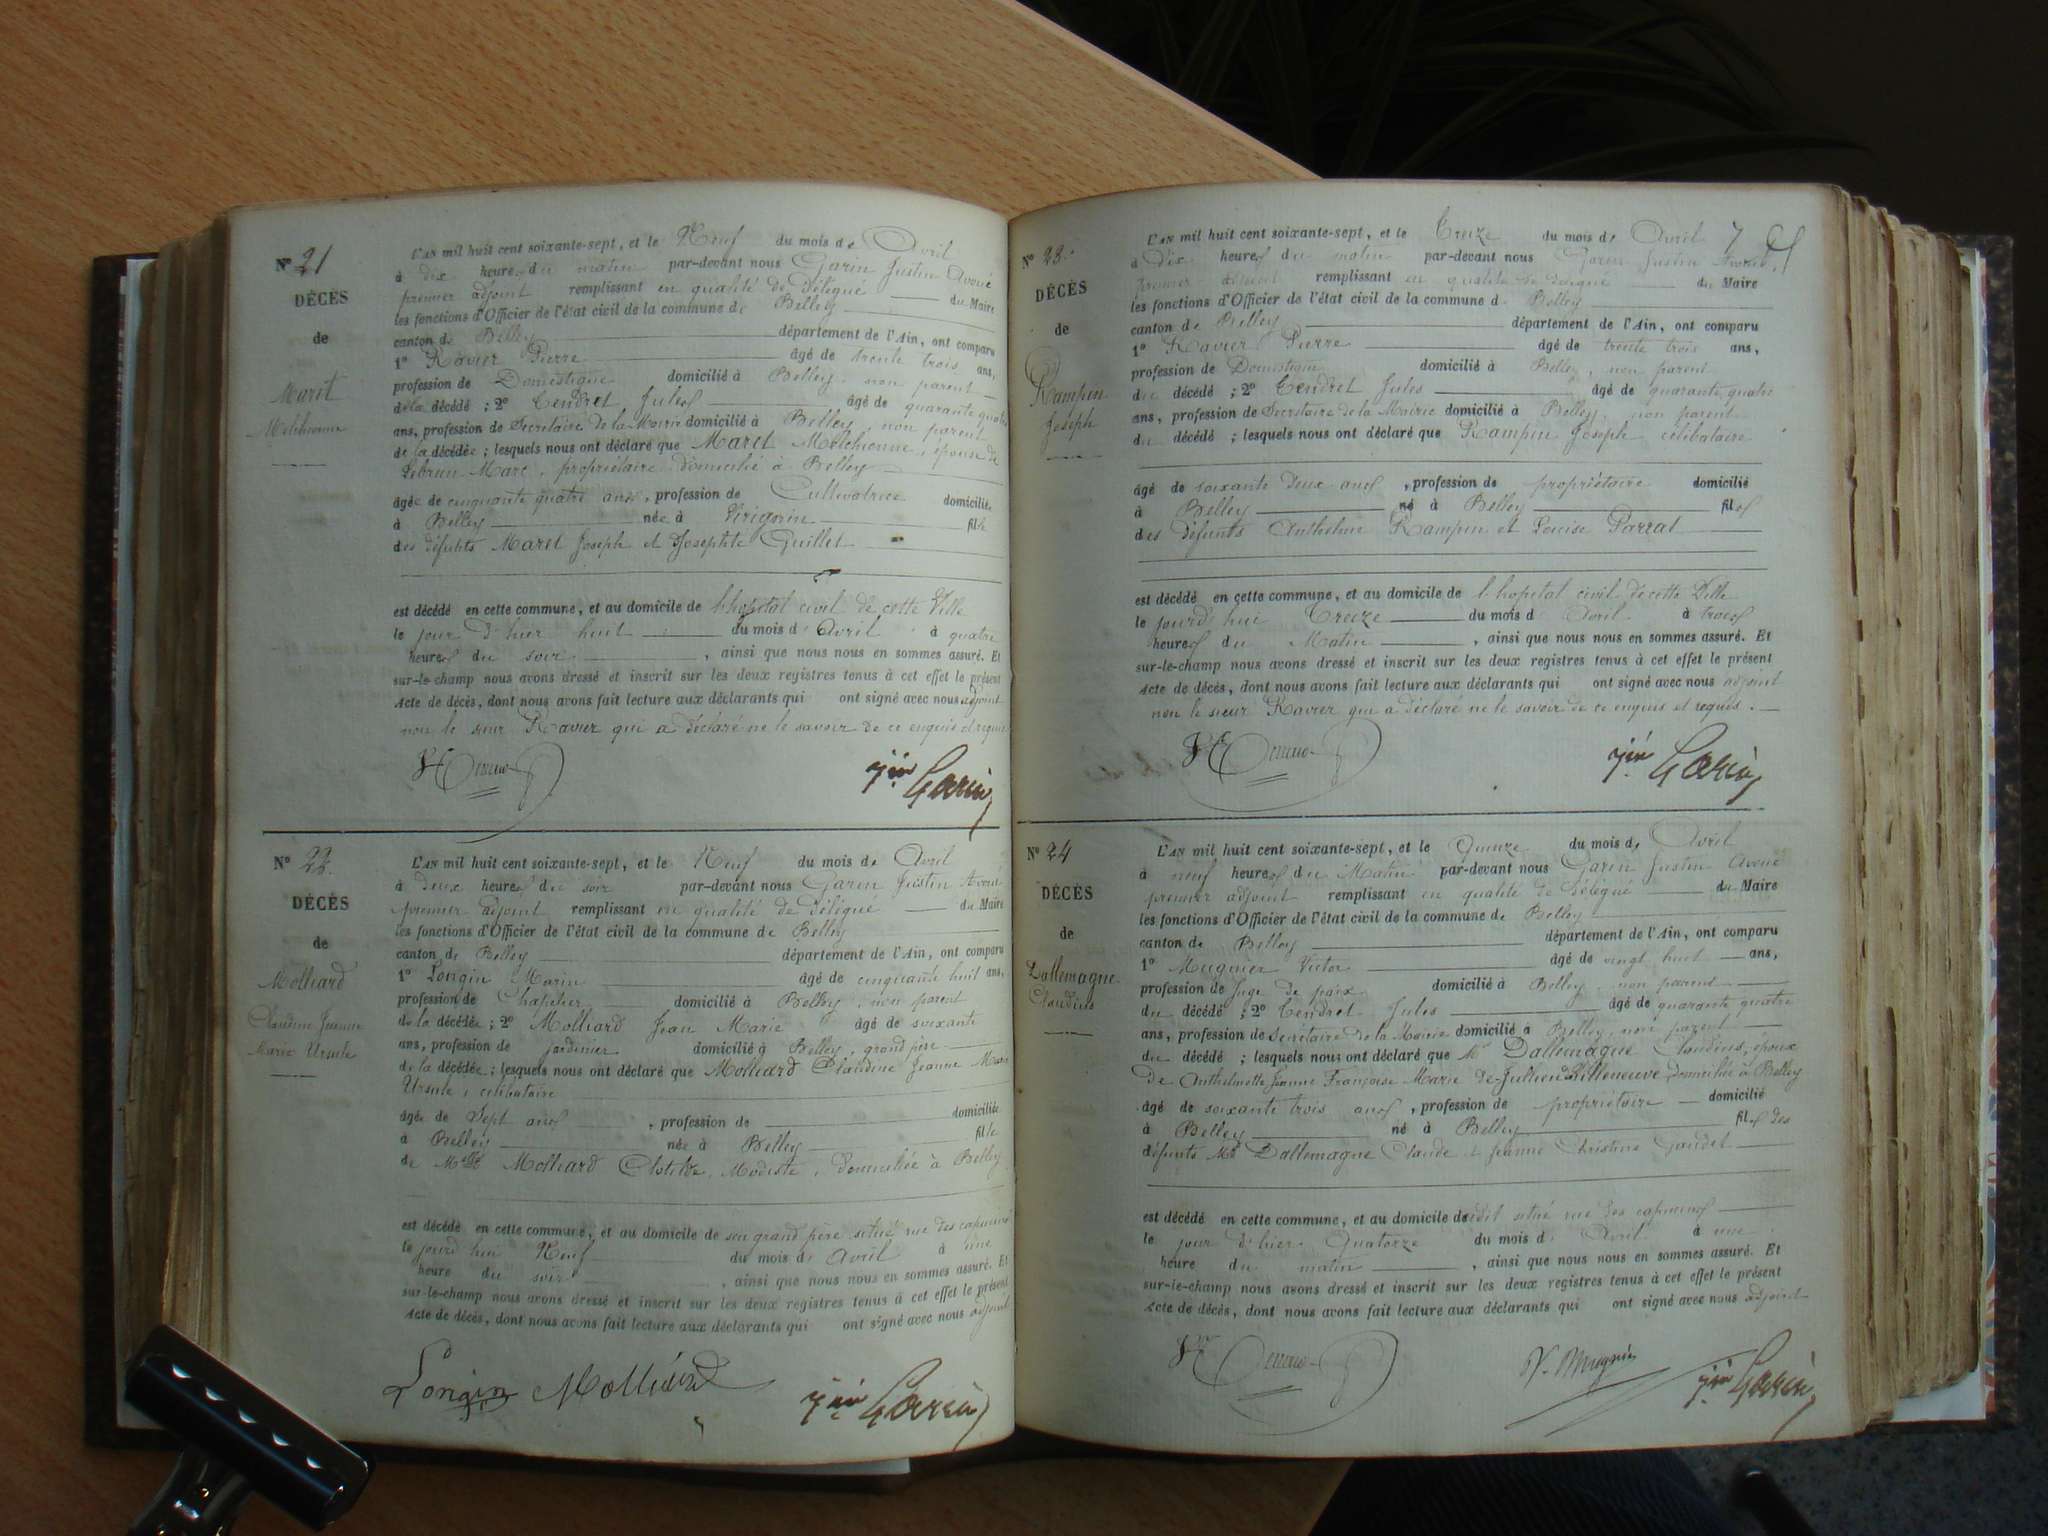 Nº 21
DÉCÈS
de
Maret
Melchionne
L'AN mil huit cent soixante-sept, et le Neuf du mois de Avril
à dix heures du matin par-devant nous Garin Justin Avoué
premier adjoint remplissant en qualité de délégué du Maire
les fonctions d'Officier de l'état civil de la commune de Belley
canton de Belley département de l'Ain, ont comparu
1º Ravier Pierre âgé de trente trois ans,
profession de Domestique domicilié à Belley, non parent
de la décédé ; 2º Tendret Jules âgé de quarante quatre
ans, profession de Secrétaire de la Mairie domicilié à Belley, non parent
de la décédée ; lesquels nous ont déclaré que Maret Melchionne, épouse de
Lebrun Marc, propriétaire domicilié à Belley
âgée de cinquante quatre ans, profession de Cultivatrice domiciliée
à Belley née à Virignin fille
des défunts Maret Joseph et Josephte Guillet
est décédé en cette commune, et au domicile de l'hopital civil de cette Ville
le jour d'hier huit du mois d'Avril à quatre
heures du soir, ainsi que nous nous en sommes assuré. Et
sur-le-champ nous avons dressé et inscrit sur les deux registres tenus à cet effet le présent
Acte de décès, dont nous avons fait lecture aux déclarants qui ont signé avec nous adjoint
non le sieur Ravier qui a déclaré ne le savoir de ce enquis et requis
jin Garin
Nº 22
DÉCÈS
de
Molliard
Claudine Jeanne
Marie Ursule
L'AN mil huit cent soixante-sept, et le Neuf du mois de Avril
à deux heures du soir par-devant nous Garin Justin Avoué
premier adjoint remplissant en qualité de délégué du Maire
les fonctions d'Officier de l'état civil de la commune de Belley
canton de Belley département de l'Ain, ont comparu
1º Longin Marin âgé de cinquante huit ans,
profession de Chapelier domicilié à Belley, non parent
de la décédée ; 2º Molliard Jean Marie âgé de soixante
ans, profession de jardinier domicilié à Belley, grand père
de la décédée ; lesquels nous ont déclaré que Molliard Claudine Jeanne Marie
Ursule, célibataire
âgée de Sept ans, profession de domiciliée
à Belley née à Belley fille
de Melle Molliard Clotilde, Modeste, domiciliée à Belley
est décédé en cette commune, et au domicile de son grand père situé rue des capucins
le jourd'hui Neuf du mois d'Avril à une
heure du soir, ainsi que nous nous en sommes assuré. Et
sur-le-champ nous avons dressé et inscrit sur les deux registres tenus à cet effet le présent
Acte de décès, dont nous avons fait lecture aux déclarants qui ont signé avec nous adjoint
Longin Molliard jin Garin
Nº 23
DÉCÈS
de
Rampin
Joseph
L'AN mil huit cent soixante-sept, et le Treize du mois d'Avril
à Dix heures du matin par-devant nous Garin Justin Avoué,
premier adjoint remplissant en qualité de délégué du Maire
les fonctions d'Officier de l'état civil de la commune de Belley
canton de Belley département de l'Ain, ont comparu
1º Ravier Pierre âgé de trente trois ans,
profession de Domestique domicilié à Belley, non parent
du décédé ; 2º Tendret Jules âgé de quarante quatre
ans, profession de Secrétaire de la Mairie domicilié à Belley, non parent
du décédé ; lesquels nous ont déclaré que Rampin Joseph célibataire
âgé de soixante deux ans, profession de propriétaire domicilié
à Belley né à Belley fils
des défunts Anthelme Rampin et Louise Parrat
est décédé en cette commune, et au domicile de l'hopital civil de cette Ville
le jourd'hui Treize du mois d'Avril à trois
heures du Matin, ainsi que nous nous en sommes assuré. Et
sur-le-champ nous avons dressé et inscrit sur les deux registres tenus à cet effet le présent
Acte de décès, dont nous avons fait lecture aux déclarants qui ont signé avec nous adjoint
non le sieur Ravier qui a déclaré ne le savoir de ce enquis et requis.
jin Garin
Nº 24
DÉCÈS
de
Dallemagne
Claudius
L'AN mil huit cent soixante-sept, et le Quinze du mois de Avril
à neuf heures du Matin par-devant nous Garin Justin Avoué
premier adjoint remplissant en qualité de délégué du Maire
les fonctions d'Officier de l'état civil de la commune de Belley
canton de Belley département de l'Ain, ont comparu
1º Mugnier Victor âgé de vingt huit ans,
profession de Juge de paix domicilié à Belley, non parent
du décédé ; 2º Tendret Jules âgé de quarante quatre
ans, profession de Secrétaire de la Mairie domicilié à Belley, non parent
du décédé ; lesquels nous ont déclaré que Mr Dallemagne Claudius, époux
de Anthelmette Jeanne Françoise Marie de Jullien de Villeneuve domiciliée à Belley
âgé de soixante trois ans, profession de propriétaire domicilié
à Belley né à Belley fils des
défunts Mr Dallemagne Claude et Jeanne Christine Gaudet
est décédé en cette commune, et au domicile dudit situé rue des capucins
le jour d'hier Quatorze du mois d'Avril à une
heure du matin, ainsi que nous nous en sommes assuré. Et
sur-le-champ nous avons dressé et inscrit sur les deux registres tenus à cet effet le présent
Acte de décès, dont nous avons fait lecture aux déclarants qui ont signé avec nous adjoint
V. Mugnier jin Garin